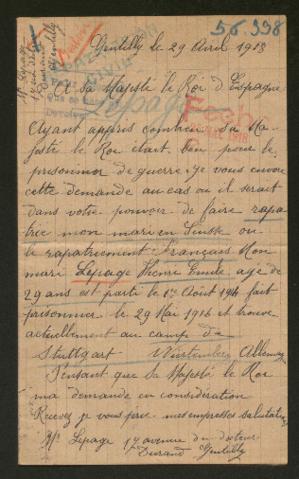 56.998
Gentilly le 29 Avril 1918
A sa Majesté le Roi d'Espagne
Lepage
Ayant appris combien sa Ma-
jesté le Roi etait bon pour le
prisonnier de guerre je vous envoie
cette demande au cas ou il serait
dans votre pouvoir de faire rapa
trier mon mari en ou
le rapatriement Français Mon
mari Lepage Pierre Emile age de
29 ans est parti le 1er Août 1914 fait
prisonnier le 29 Mai 1916 et trouve
actuellement au camp de
Stuttgart Würtemberg Allemag
Pensant que sa Majesté le Roi
ma demande en considération
Recevez je vous prie mes empresses salutations
Me Lepage 17 avenue du docteur
Durand Gentilly